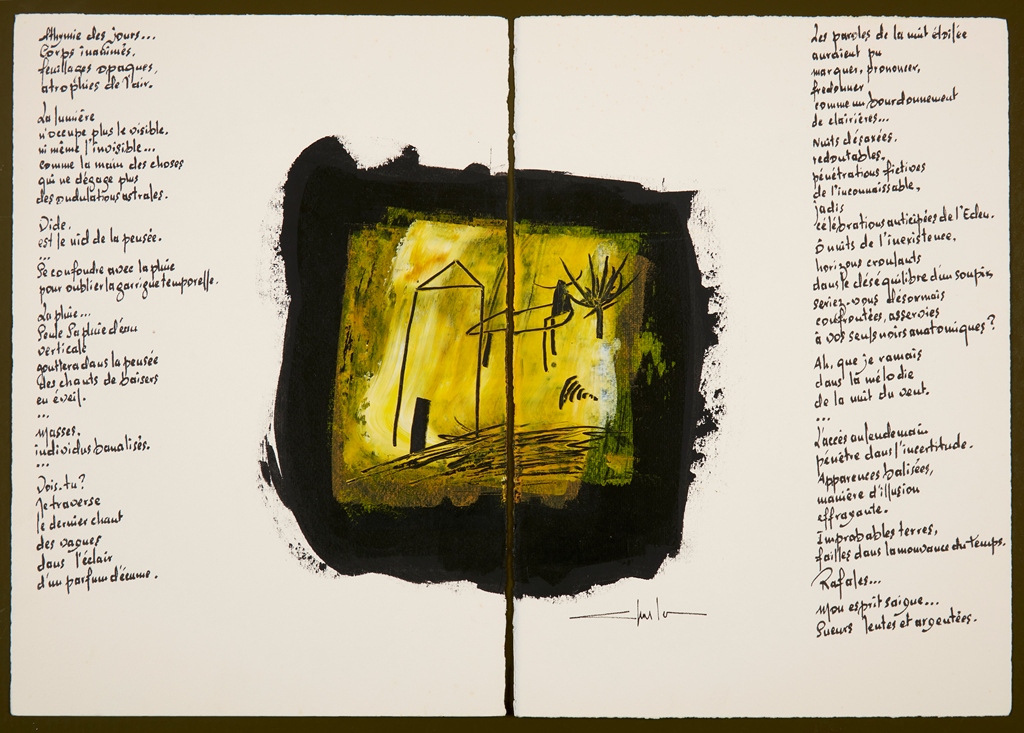 Athymie des jours...
Corps inanimés,
feuillages opaques,
atrophies de l'air.
La lumière
n'occupe plus le visible.
ni même l'invisible...
comme la main des choses
qui ne dégage plus
des ondulations astrales.
Vide,
est le nid de la pensée.
...
Se confondre avec la pluie
pour oublier la garrigue temporelle.
La pluie...
Seule sa pluie d'eau
verticale
gouttera dans la pensée
des chants de baisers
en éveil.
...
Masses.
individus banalisés.
...
Vois-tu?
Je traverse
le dernier chant
des vagues
dans l'éclair
d'un parfum d'écume.
Les paroles de la nuit étoilée
auraient pu
marquer, prononcer,
fredonner
comme un bourdonnement
de clairières...
Nuits désaxées,
redoutables,
pénétrations fictives
de l'inconnaissable,
jadis
célébrations anticipées de l'Eden.
Ô nuits de l'inexistence,
horizons croulants
dans le déséquilibre d'un soupir,
seriez-vous désormais
confrontées, asservies
à vos seuls noirs anatomiques?
Ah, que je ramais
dans la mélodie
de la nuit du vent.
...
L'accès au lendemain
pénètre dans l'incertitude.
Apparences balisées,
manière d'illusion
effrayante.
Improbables terres,
failles dans la mouvance du temps.
Rafales...
Mon esprit saigne...
Sueurs lentes et argentées.